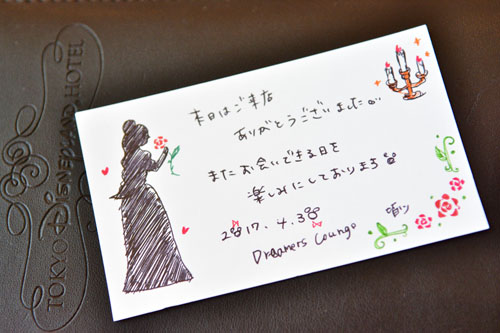 TOKYO DISNEYLAND HOTEL
本日はご来店
ありがとうございました
またお会いできる日を
楽しみにしております
2017. 4. 3
Dreamers Lounge